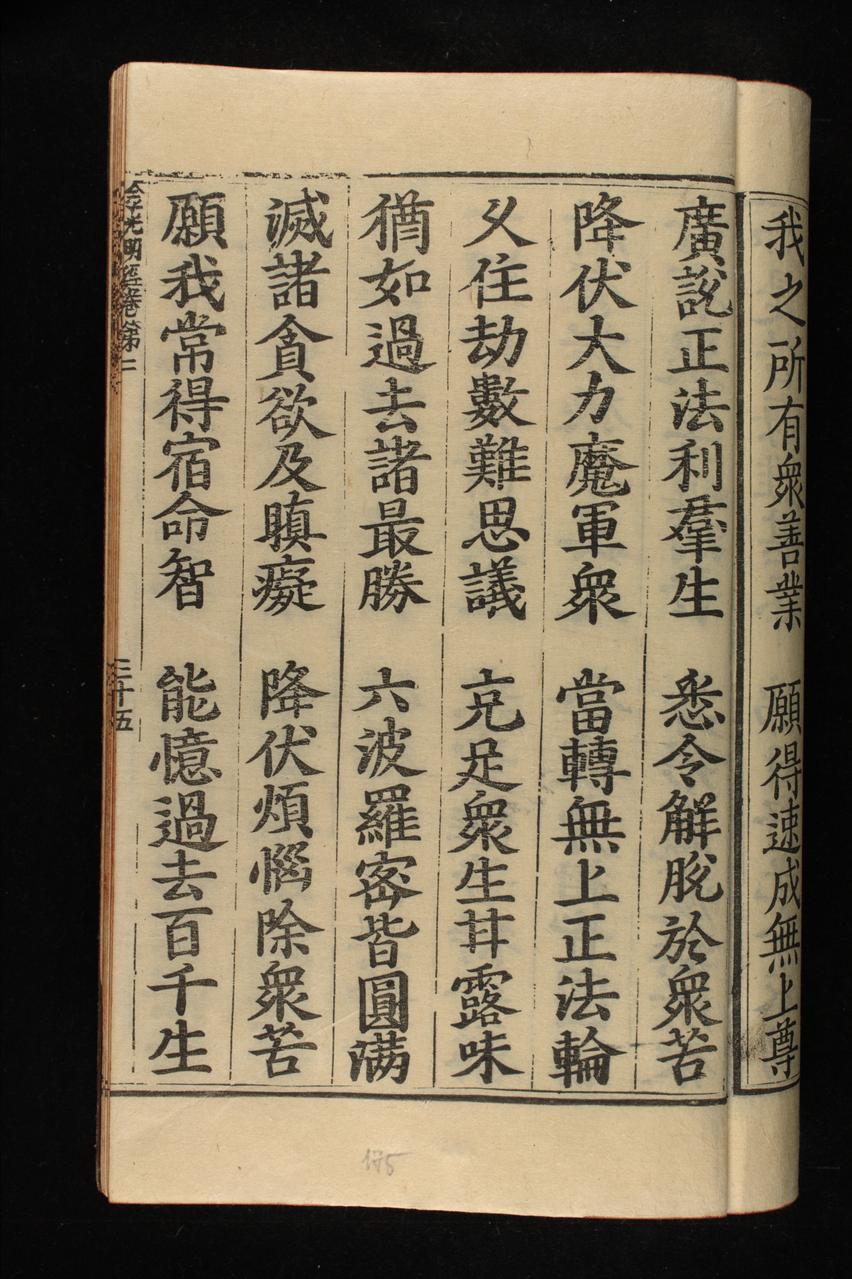 我之所有衆善業　願得速成無上尊
廣說正法利羣生　悉令解脫於衆苦
降伏大力魔軍衆　當轉無上正法輪
久住劫數難思議　充足衆生甘露味
猶如過去諸最勝　六波羅密皆圓满
滅諸貪欲及瞋癡　降伏煩惱除衆苦
願我常得宿命智　能憶過去百千生
金光明經卷第二
三十五
175